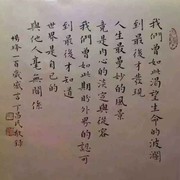 我們曾如此渴望生命的波瀾
到最後才發現
人生最曼妙的風景
竟是內心的淡定與從容
我們曾如此期盼外界的認可
到最後才知道
世界是自己的
與他人毫無關係
楊絳一百歲感言